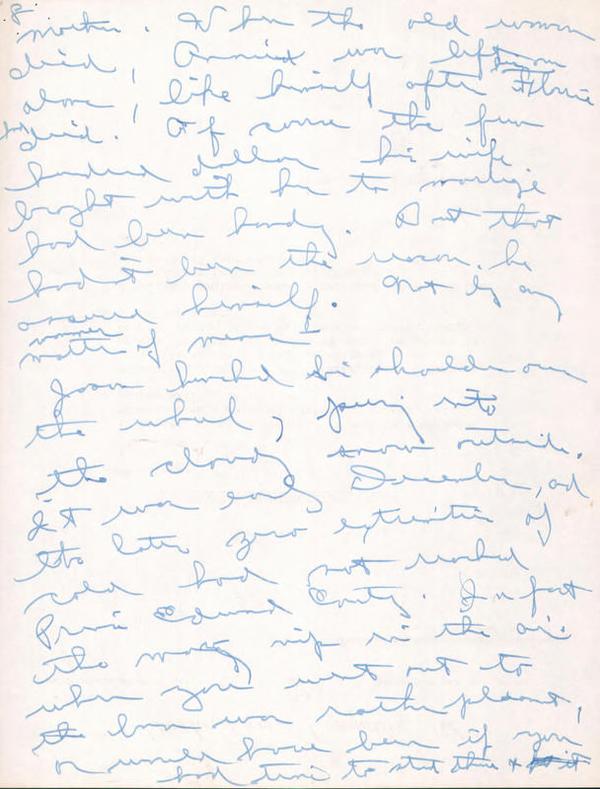 8
mother. When the old woman
died, Annie was left
alone, like himself after Flossie
died. Of course the few
hundred dollars his wife
brought with her to marriage
had been handy. But that
hadn't been the reason, he
assured himself. Not by any
manner of means
hunched his shoulders over
the wheel, peering into
the cloudy snow outside.
It was early December, and
the later zero extremities of
cold had not reached
Prince Edward County. In fact
the nip in the air
when you went out to
the barn was rather pleasant,
or would have been if you
had time to stand there & it